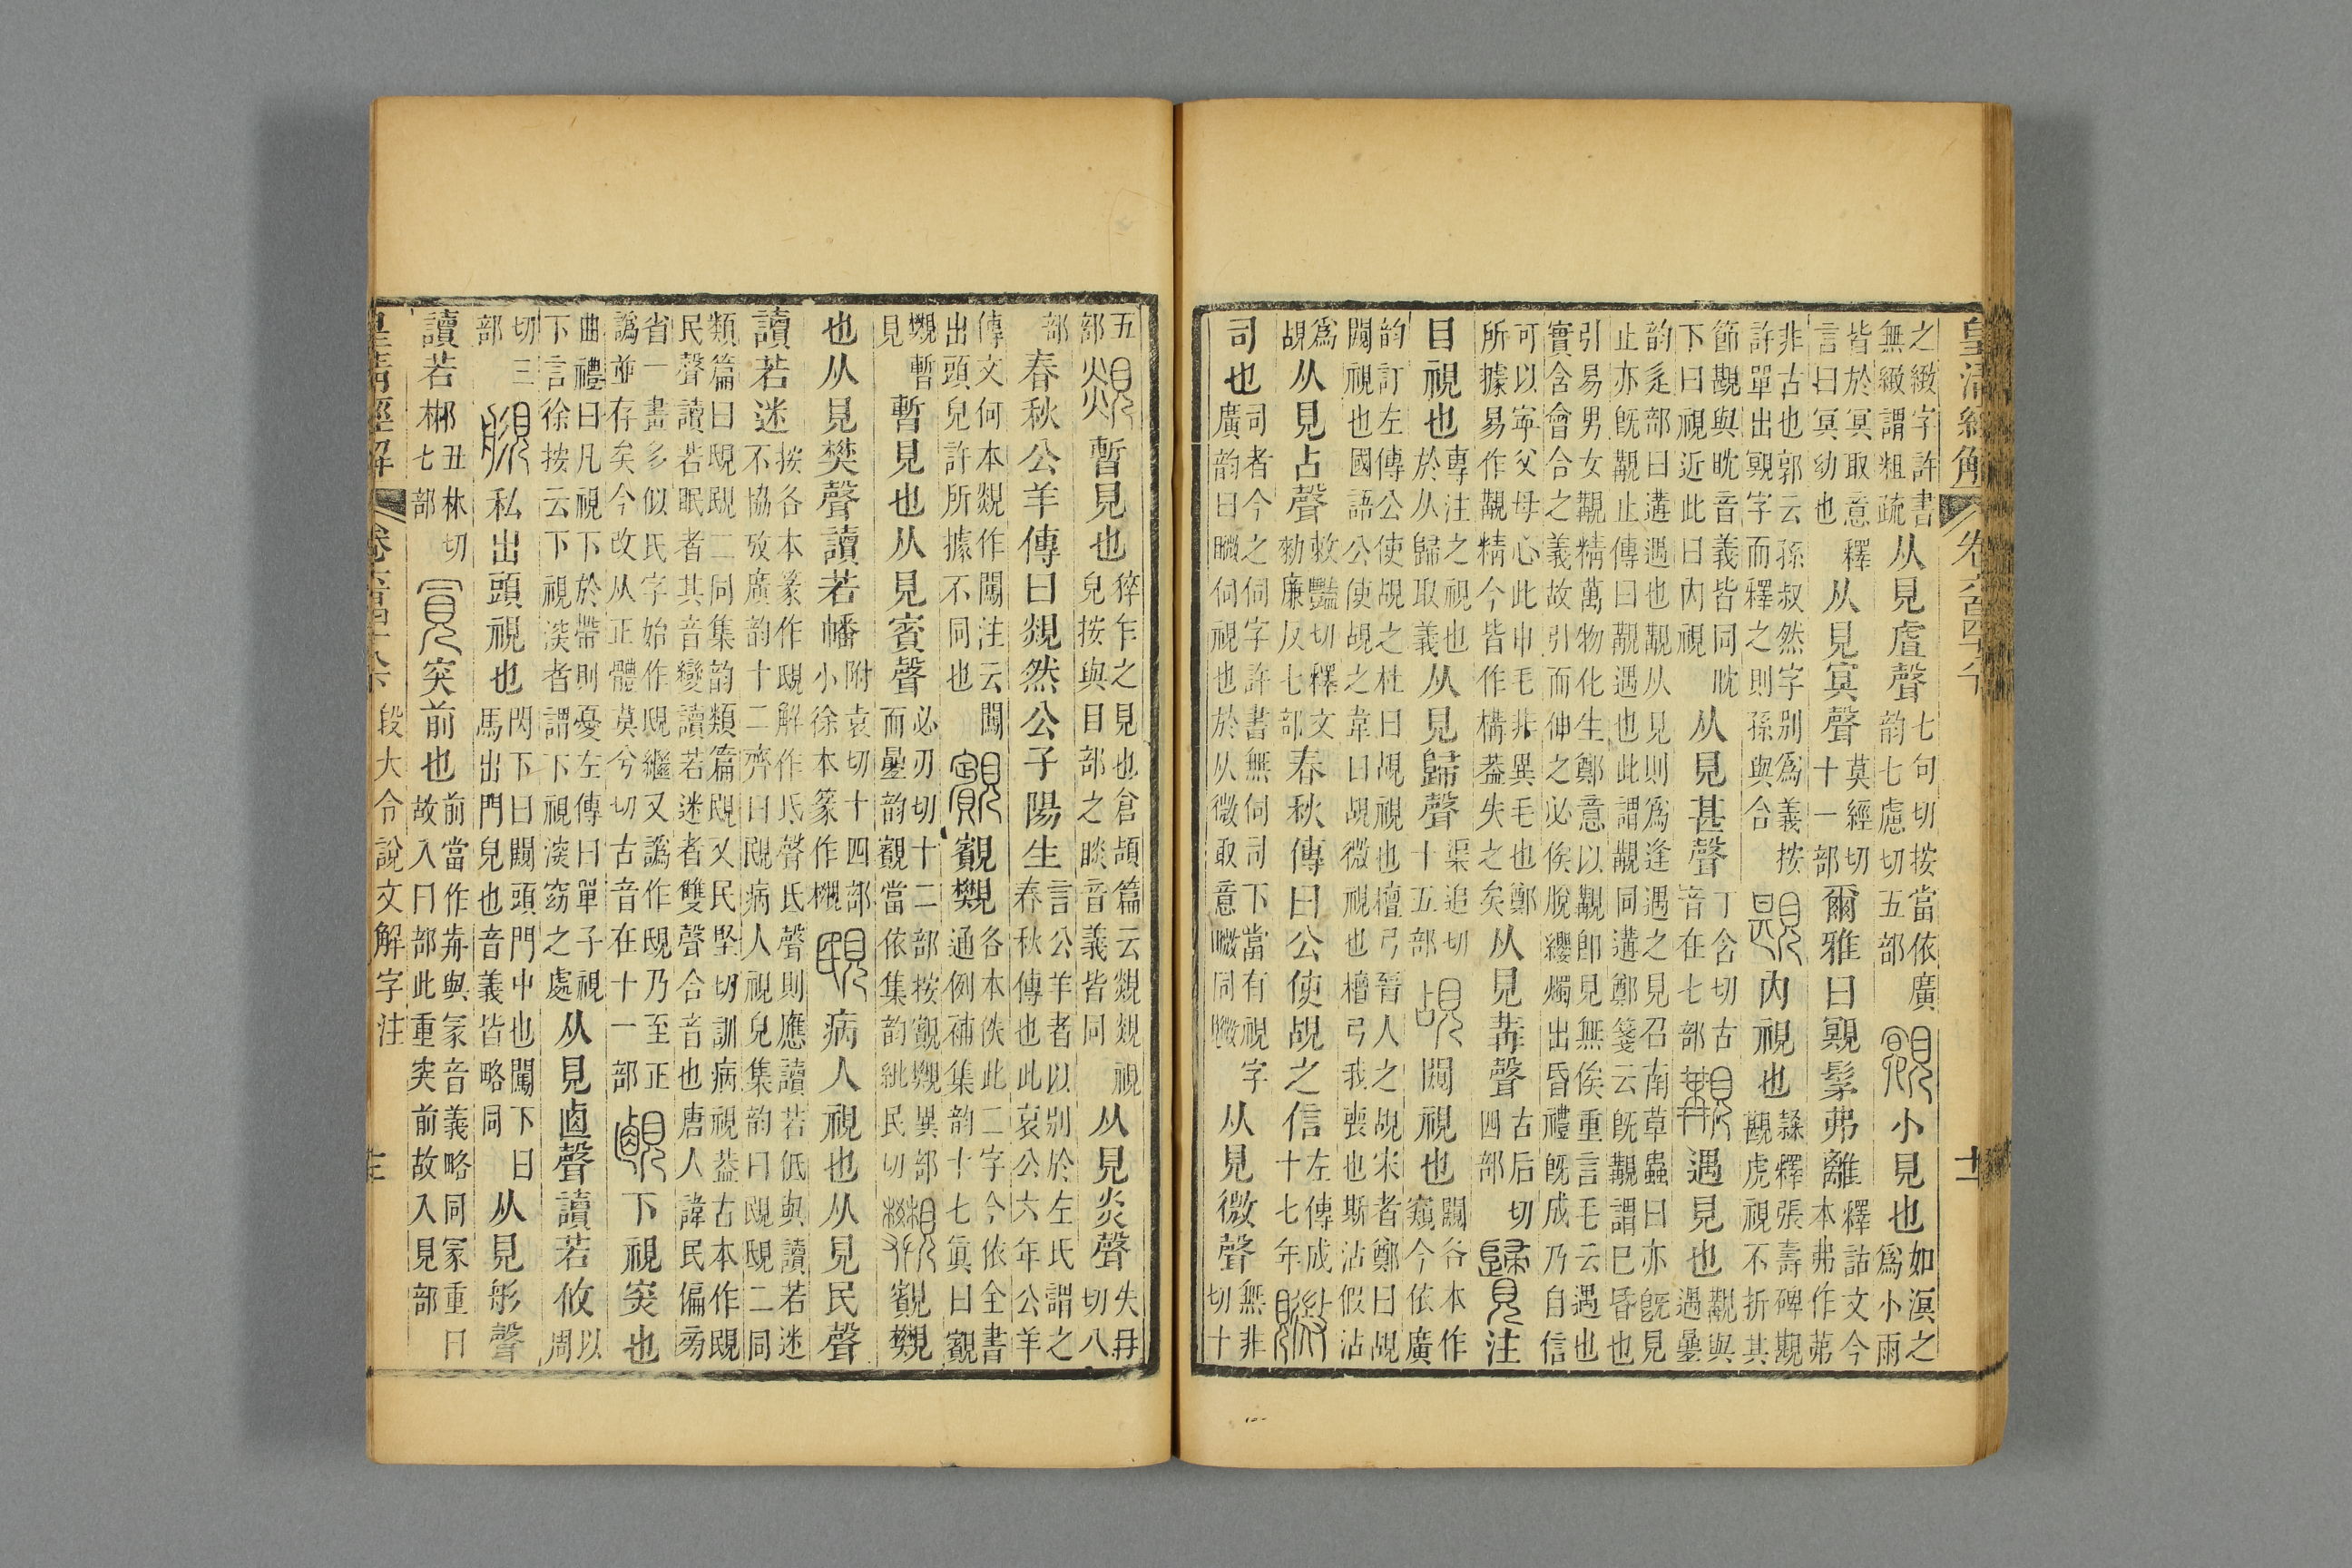 皇清經解 卷六百四十八下 十二
之緻字許書無緻謂粗疏从見虘聲七句切按當依廣韵七慮切五部小見也如溟之爲小雨
皆於冥取意釋言曰冥幼也从見冥聲莫經切十一部爾雅曰覭髳弗離釋詁文今本弗作茀
非古也郭云孫叔然字別爲義按許單出覭字而釋之則孫與合內視也䚑釋張壽碑覲覲虎視不折其
節覲與眈音義皆同眈下曰視近此曰內視从見甚聲丁含切古音在七部遘遇見也覯與遇曡
韵辵部曰遘遇也覯从見則爲逢遇之見召南草蟲曰亦旣見止亦旣覯止傳曰覯遇也此謂覯同遘鄭箋云旣覯謂巳昏也
引易男女覯精萬物化生鄭意以覯卽見無俟重言毛云遇也實含會合之義故引而伸之必俟脫纓燭出昏禮旣成乃自信
可以寧父母心此申毛非異毛也鄭所據易作覯精今皆作構葢失之矣从見冓聲古后切四部注
目視也專注之視也於从歸取義从見歸聲渠追切十五部覘闚視也闚各本作窺今依廣
韵訂左傳公使覘之杜曰覘視也檀弓晉人之覘宋者鄭曰覘闚視也國語公使覘之韋曰覘微視也檀弓我喪也斯沾假沾
爲覘从見占聲救豔切釋文勑廉反七部春秋傳曰公使覘之信左傳成十七年
司也司者今之伺字許書無伺司下當有視字廣韵曰䙿伺視也於从微取意䙿同䙿从見微聲無非切十
五部暫見也猝乍之見也倉頡篇云覢覢視皃按與目部之睒音義皆同从見炎聲失冉切八
部春秋公羊傳曰覢然公子陽生言公羊者以別於左氏謂之春秋傳也此哀公六年公羊
傳文何本覢作闖注云闖出頭皃許所據不同也覾䙬各本佚此二字今依全書通例補集韵十七眞曰覾
䙬暫見暫見也从見賓聲必刃切十二部按覾䙬異部而曡韵覾當依集韵紕民切覾䙬
也从見樊聲讀若幡附袁切十四部小徐本篆作䙪病人視也从見民聲
讀若迷按各本篆作䚏解作氐聲氐聲則應讀若低與讀若迷不協攷廣韵十二齊曰䁕病人視皃集韵曰䁕䚏二同
類篇曰䚏䁕二同集韵類篇䁕又民堅切訓病視葢古本作䁕民聲讀若眠者其音變讀若迷者雙聲合音也唐人諱民偏旁
省一畫多似氏字始作䚏繼又譌作䚏乃至正譌並存矣今改从正體莫兮切古音在十一部下視㴱也
曲禮曰凡視下於帶則憂左傳曰單子視下言徐按云下視㴱者謂下視㴱窈之處从見鹵聲讀若攸以周
切三部私出頭視也閃下曰闚頭門中也闖下曰馬出門皃也音義皆略同从見肜聲
讀若郴丑林切七部突前也前當作歬與冡音義略同冡重冃故入冃部此重突前故入見部
皇清經解 段大令說文解字注